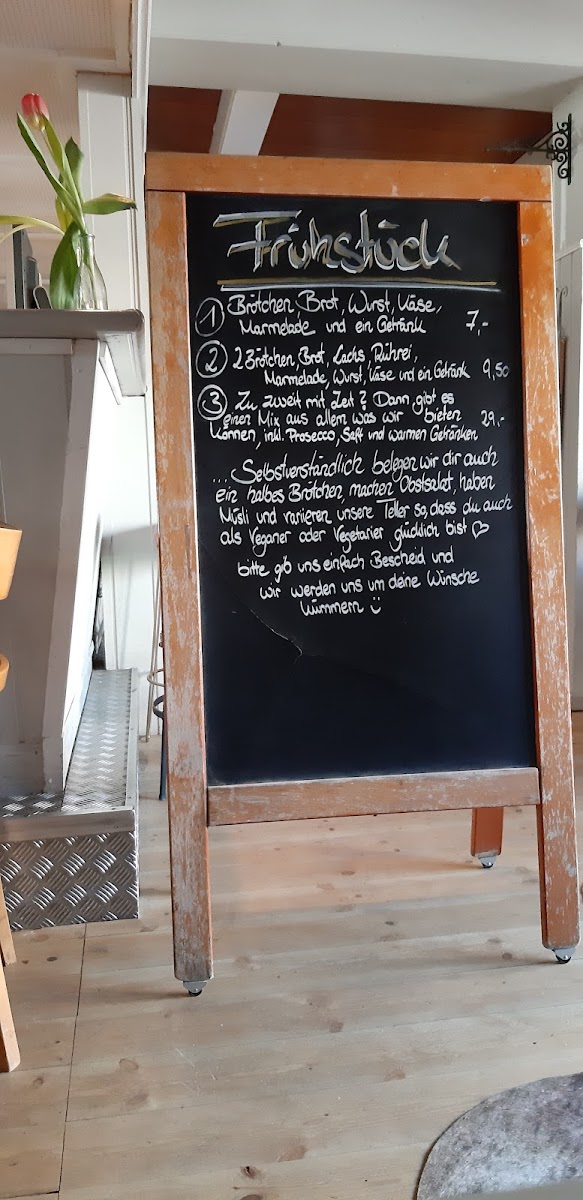 Frühstück
① Brötchen, Brot, Wurst, Käse,
Marmelade und ein Getränk 7,-
② 2 Brötchen, Brot, Lachs, Rührei,
Marmelade, Wurst, Käse und ein Getränk 9,50
③ Zu zweit mit Zeit? Dann gibt es
einen Mix aus allem was wir bieten
können, inkl. Prosecco, Saft und warmen Getränken 29.-
... Selbstverständlich belegen wir dir auch
ein halbes Brötchen, machen Obstsalat, haben
Müsli und variieren unsere Teller so, dass du auch
als Veganer oder Vegetarier glücklich bist ♡
bitte gib uns einfach Bescheid und
wir werden uns um deine Wünsche
kümmern ☺